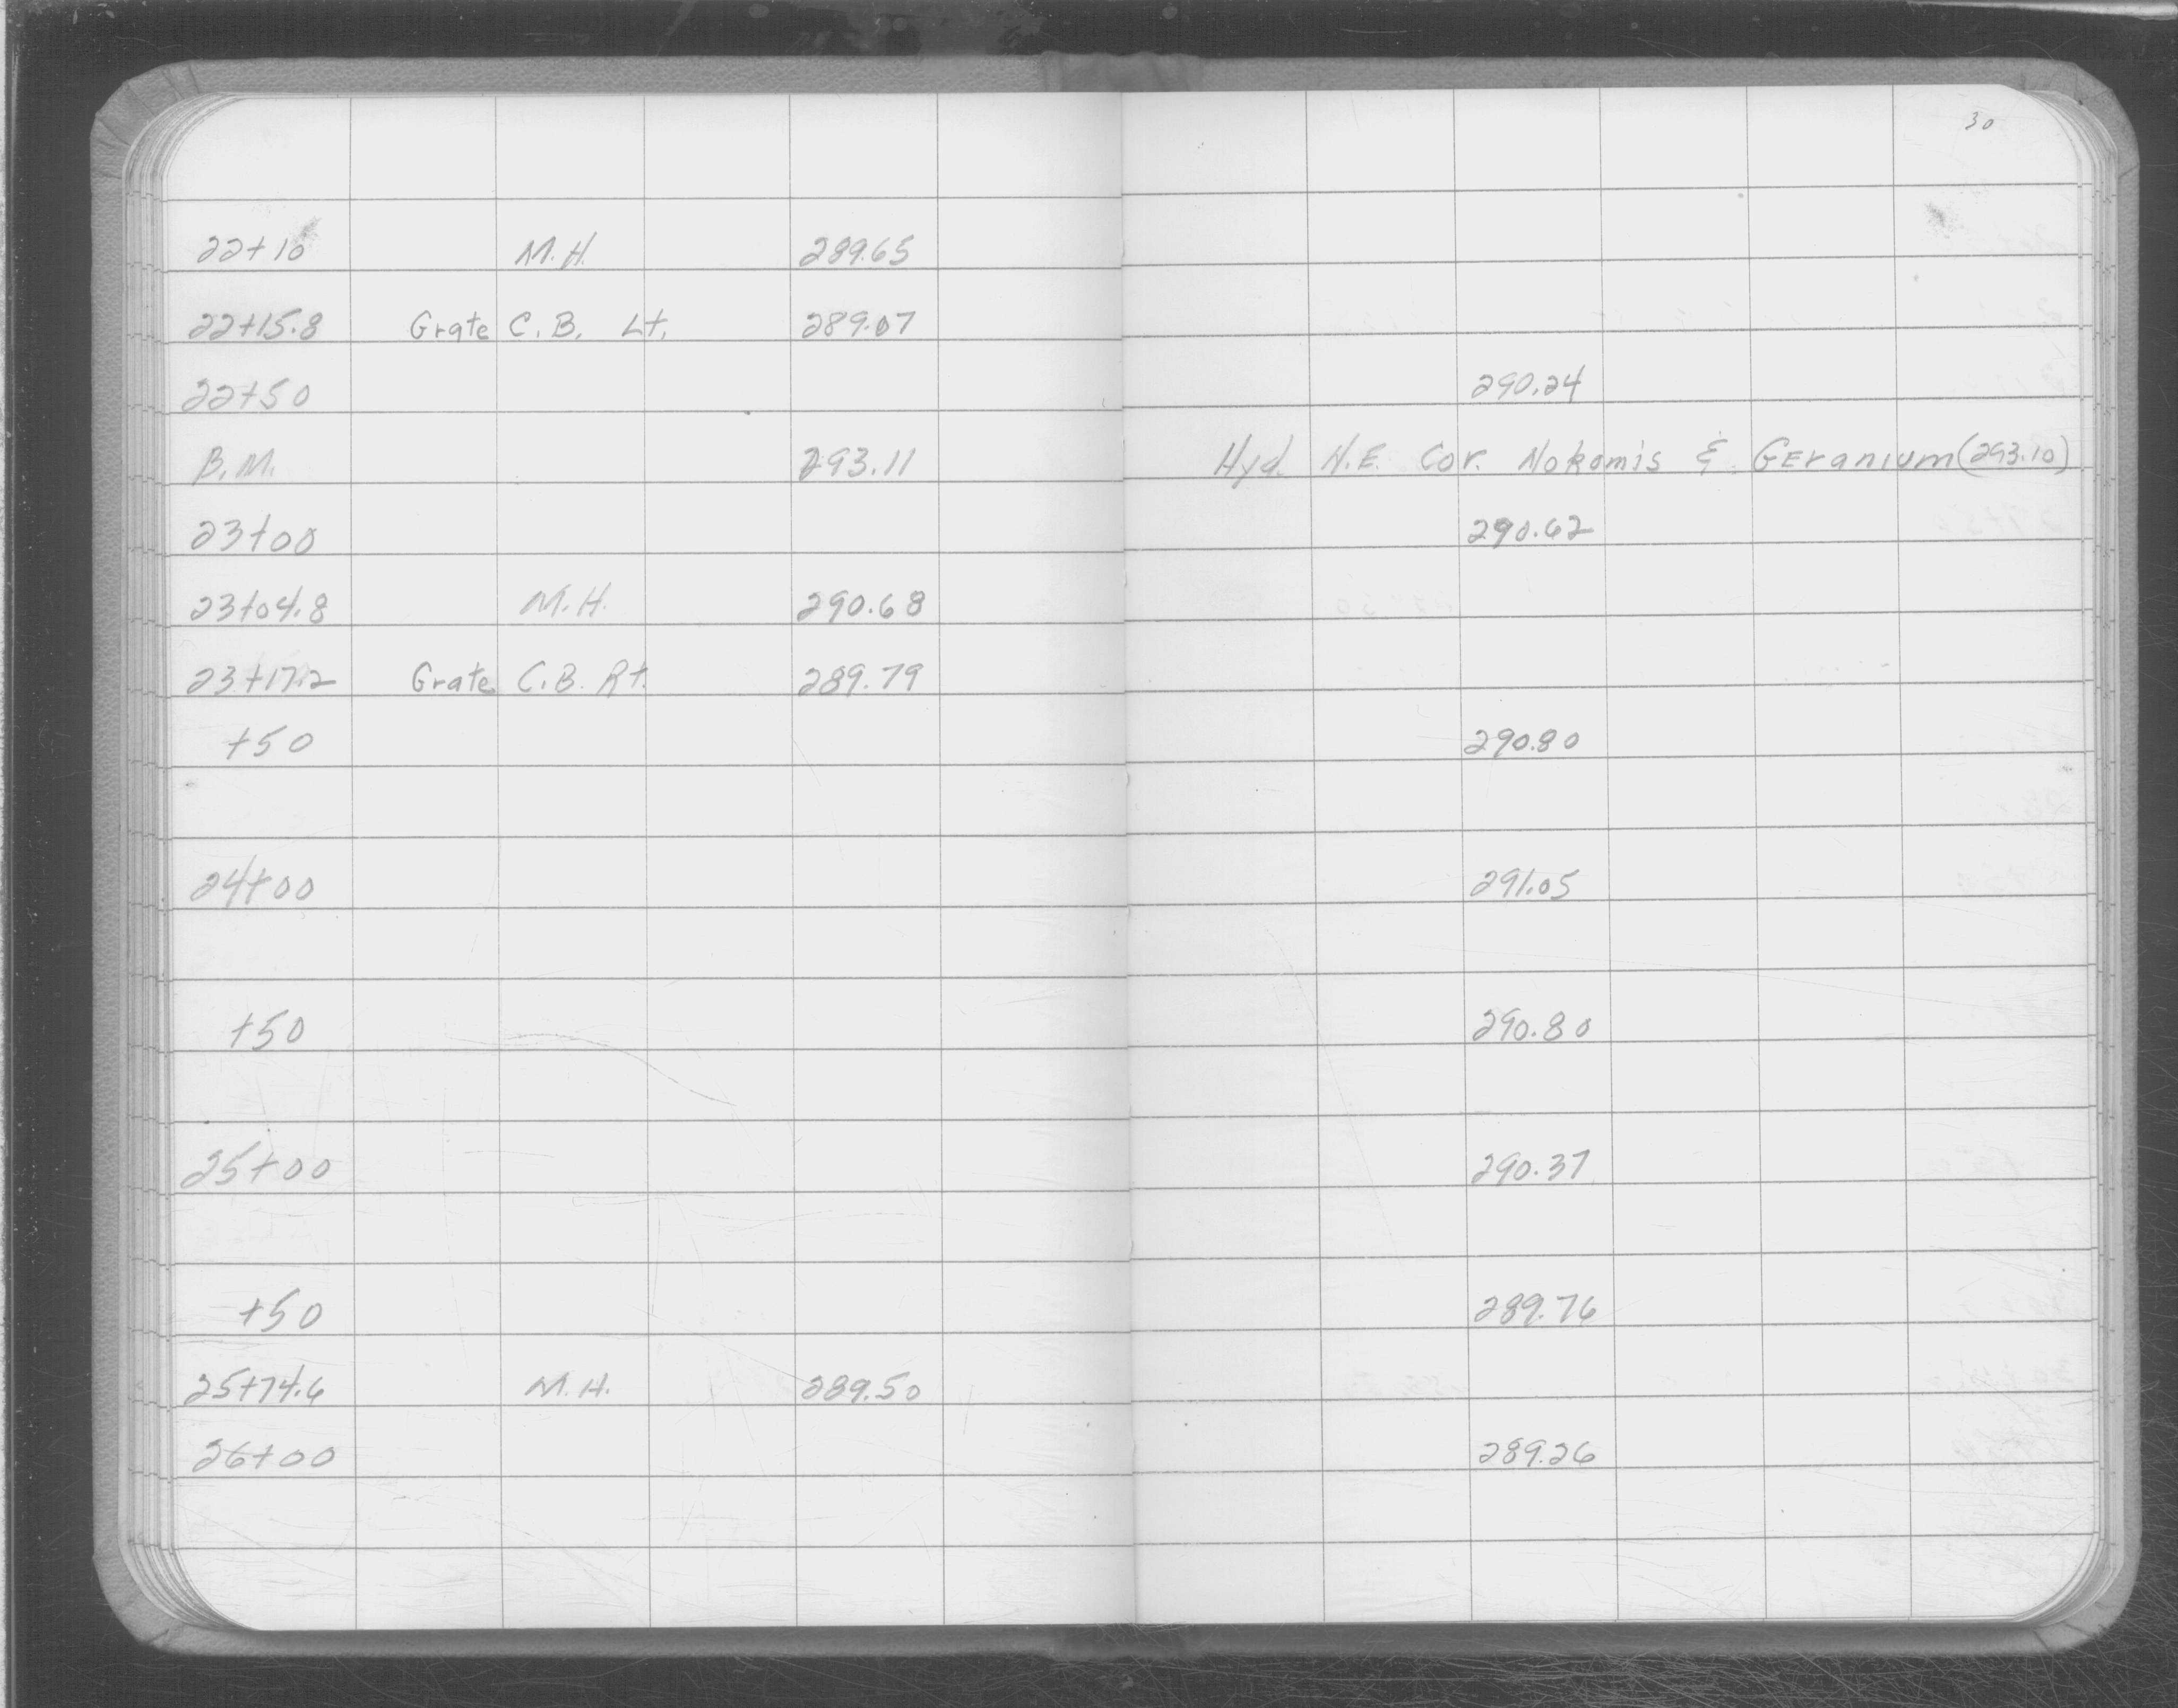 30
22+10 M.H. 289.65
22+15.8 Grate C.B. Lt. 289.07
22+50 290.24
B.M. 293.11 Hyd. N.E. Cor. Nokomis & Geranium (293.10)
23+00 290.62
23+04.8 M.H. 290.68
23+17.2 Grate C.B. Rt. 289.79
+50 290.80
24+00 291.05
+50 290.80
25+00 290.37
+50 289.76
25+74.6 M.H. 289.50
26+00 289.26